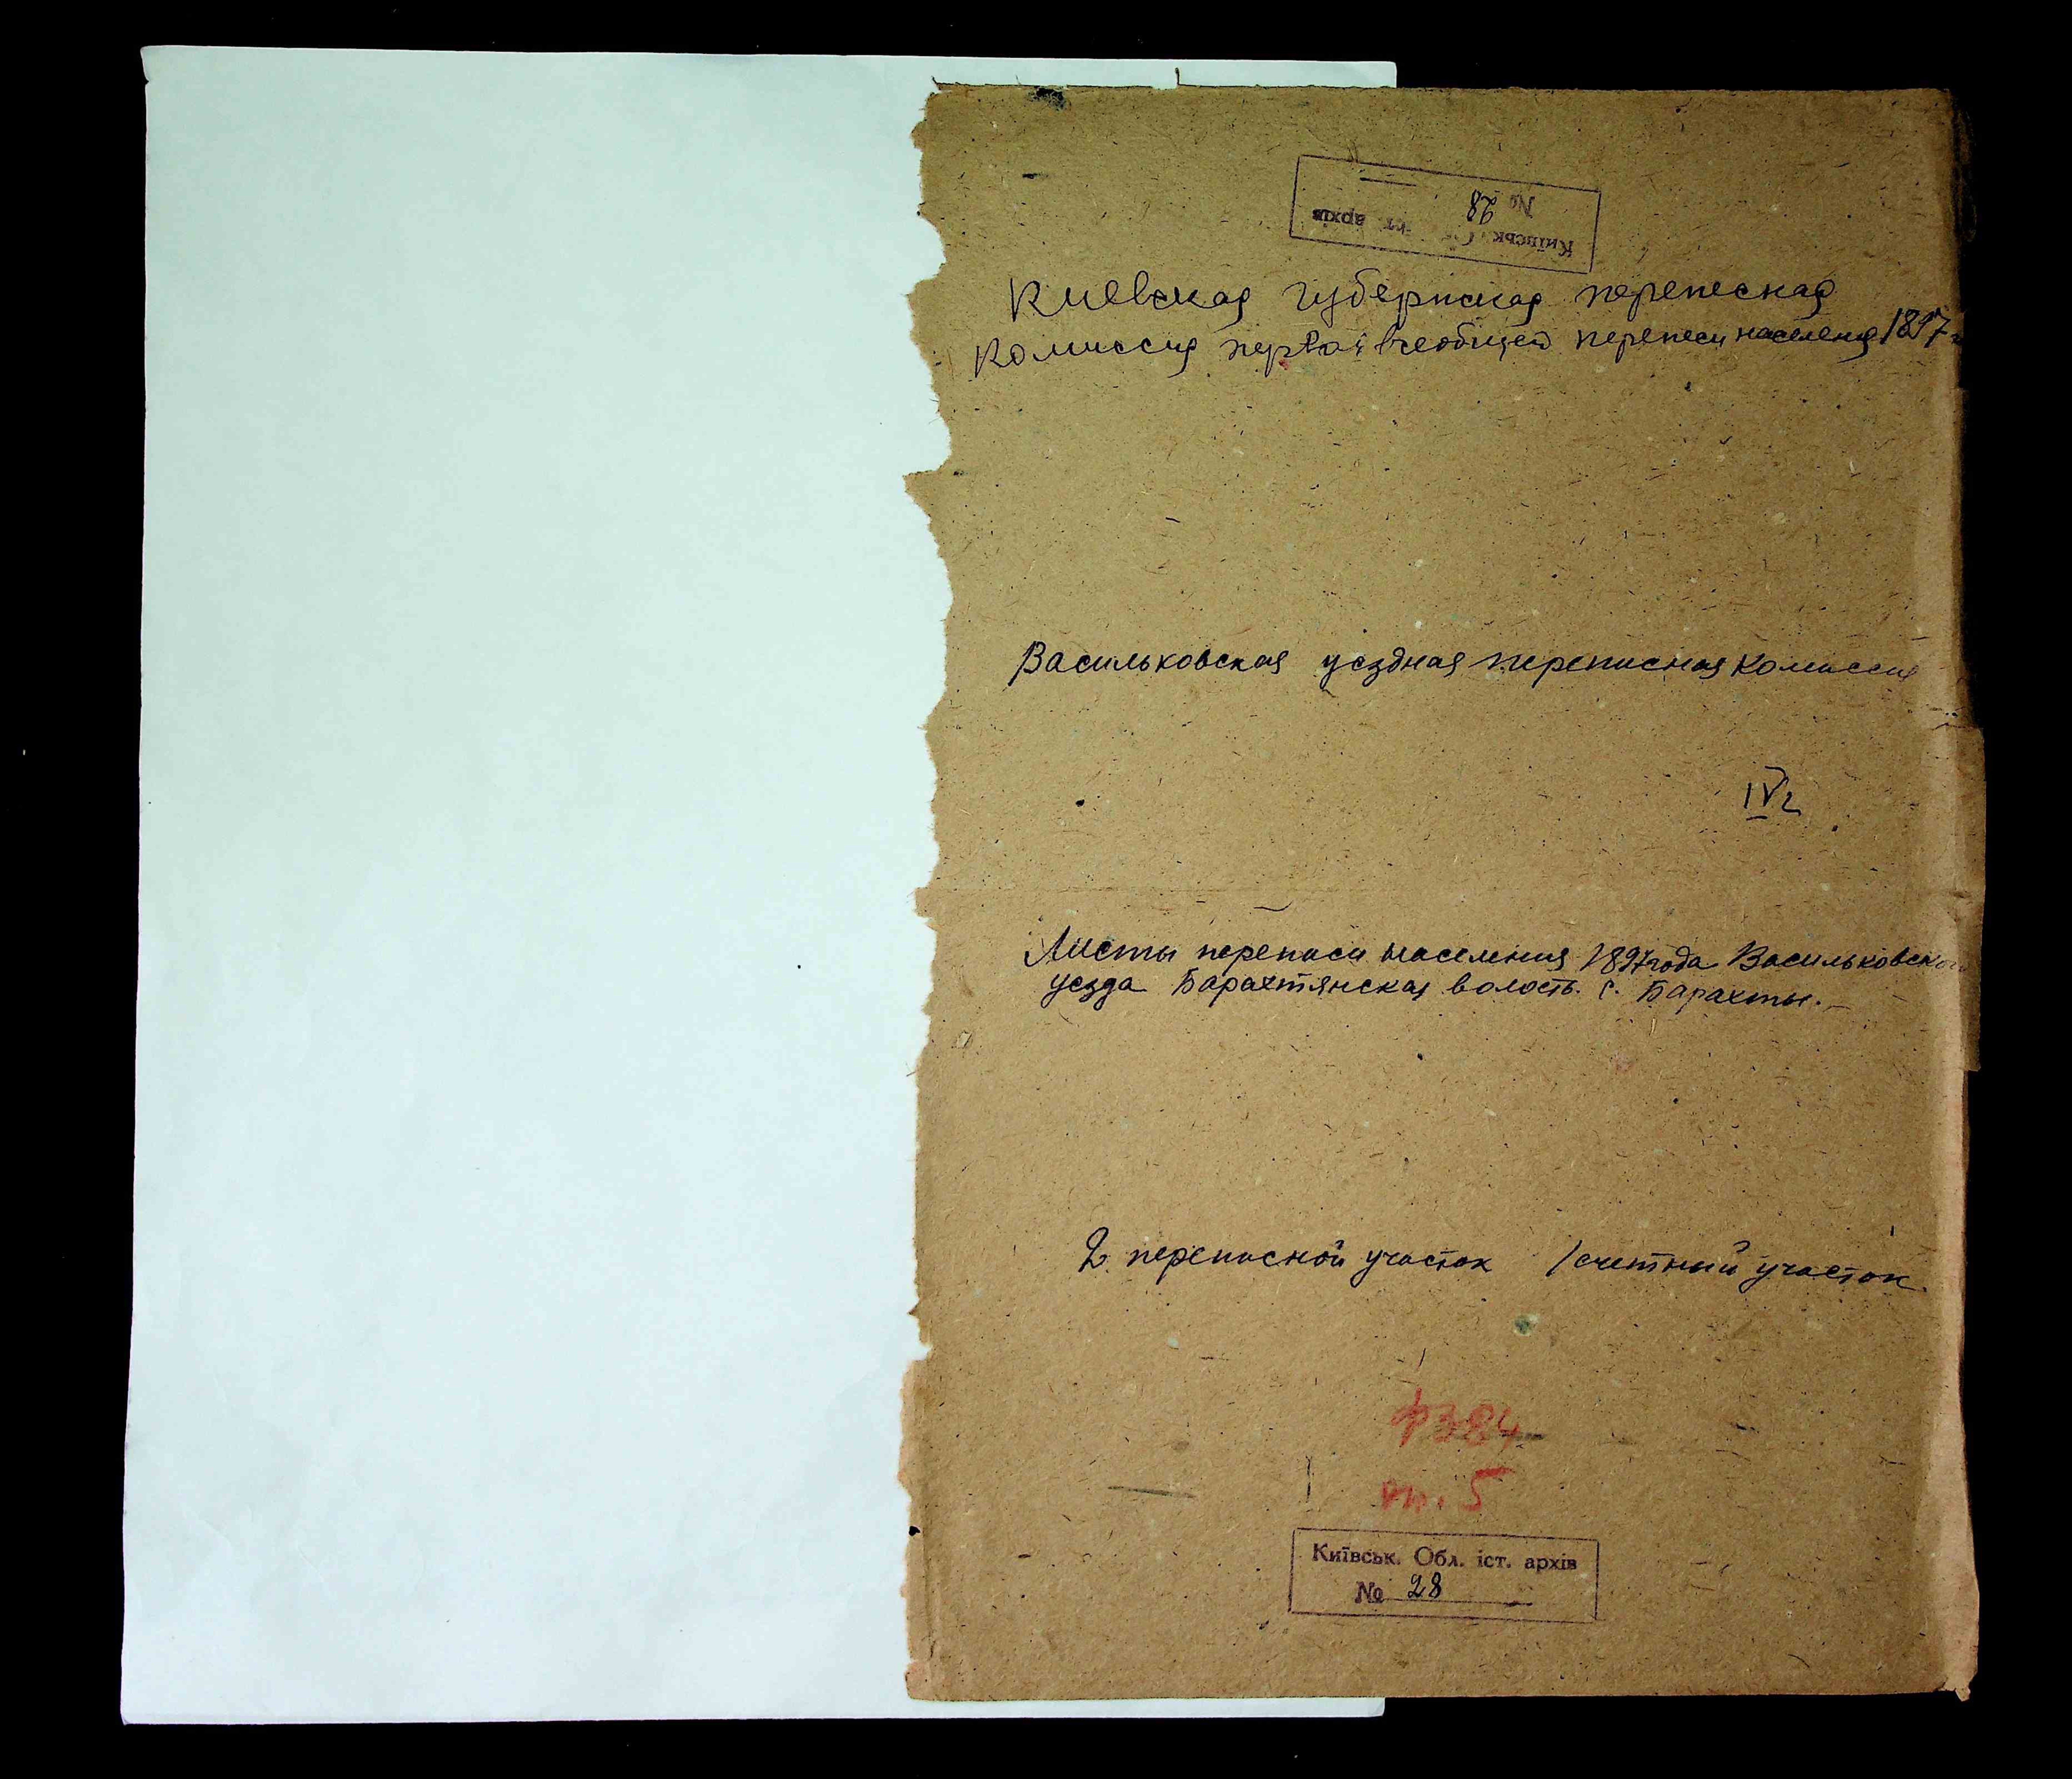 Київськ. іст. архів
№ 28
Киевская губернская перепесная
комиссия первой всеобщей перепеси населения 1897 г
Васильковская уездная переписная комиссия
IV2
Листы переписи населения 1897 года Васильковского
уезда Барахтянская волость. с. Барахты.
2 переписной участок 1 счетный участок
ф 384
оп. 5
Київськ. Обл. іст. архів
№ 28